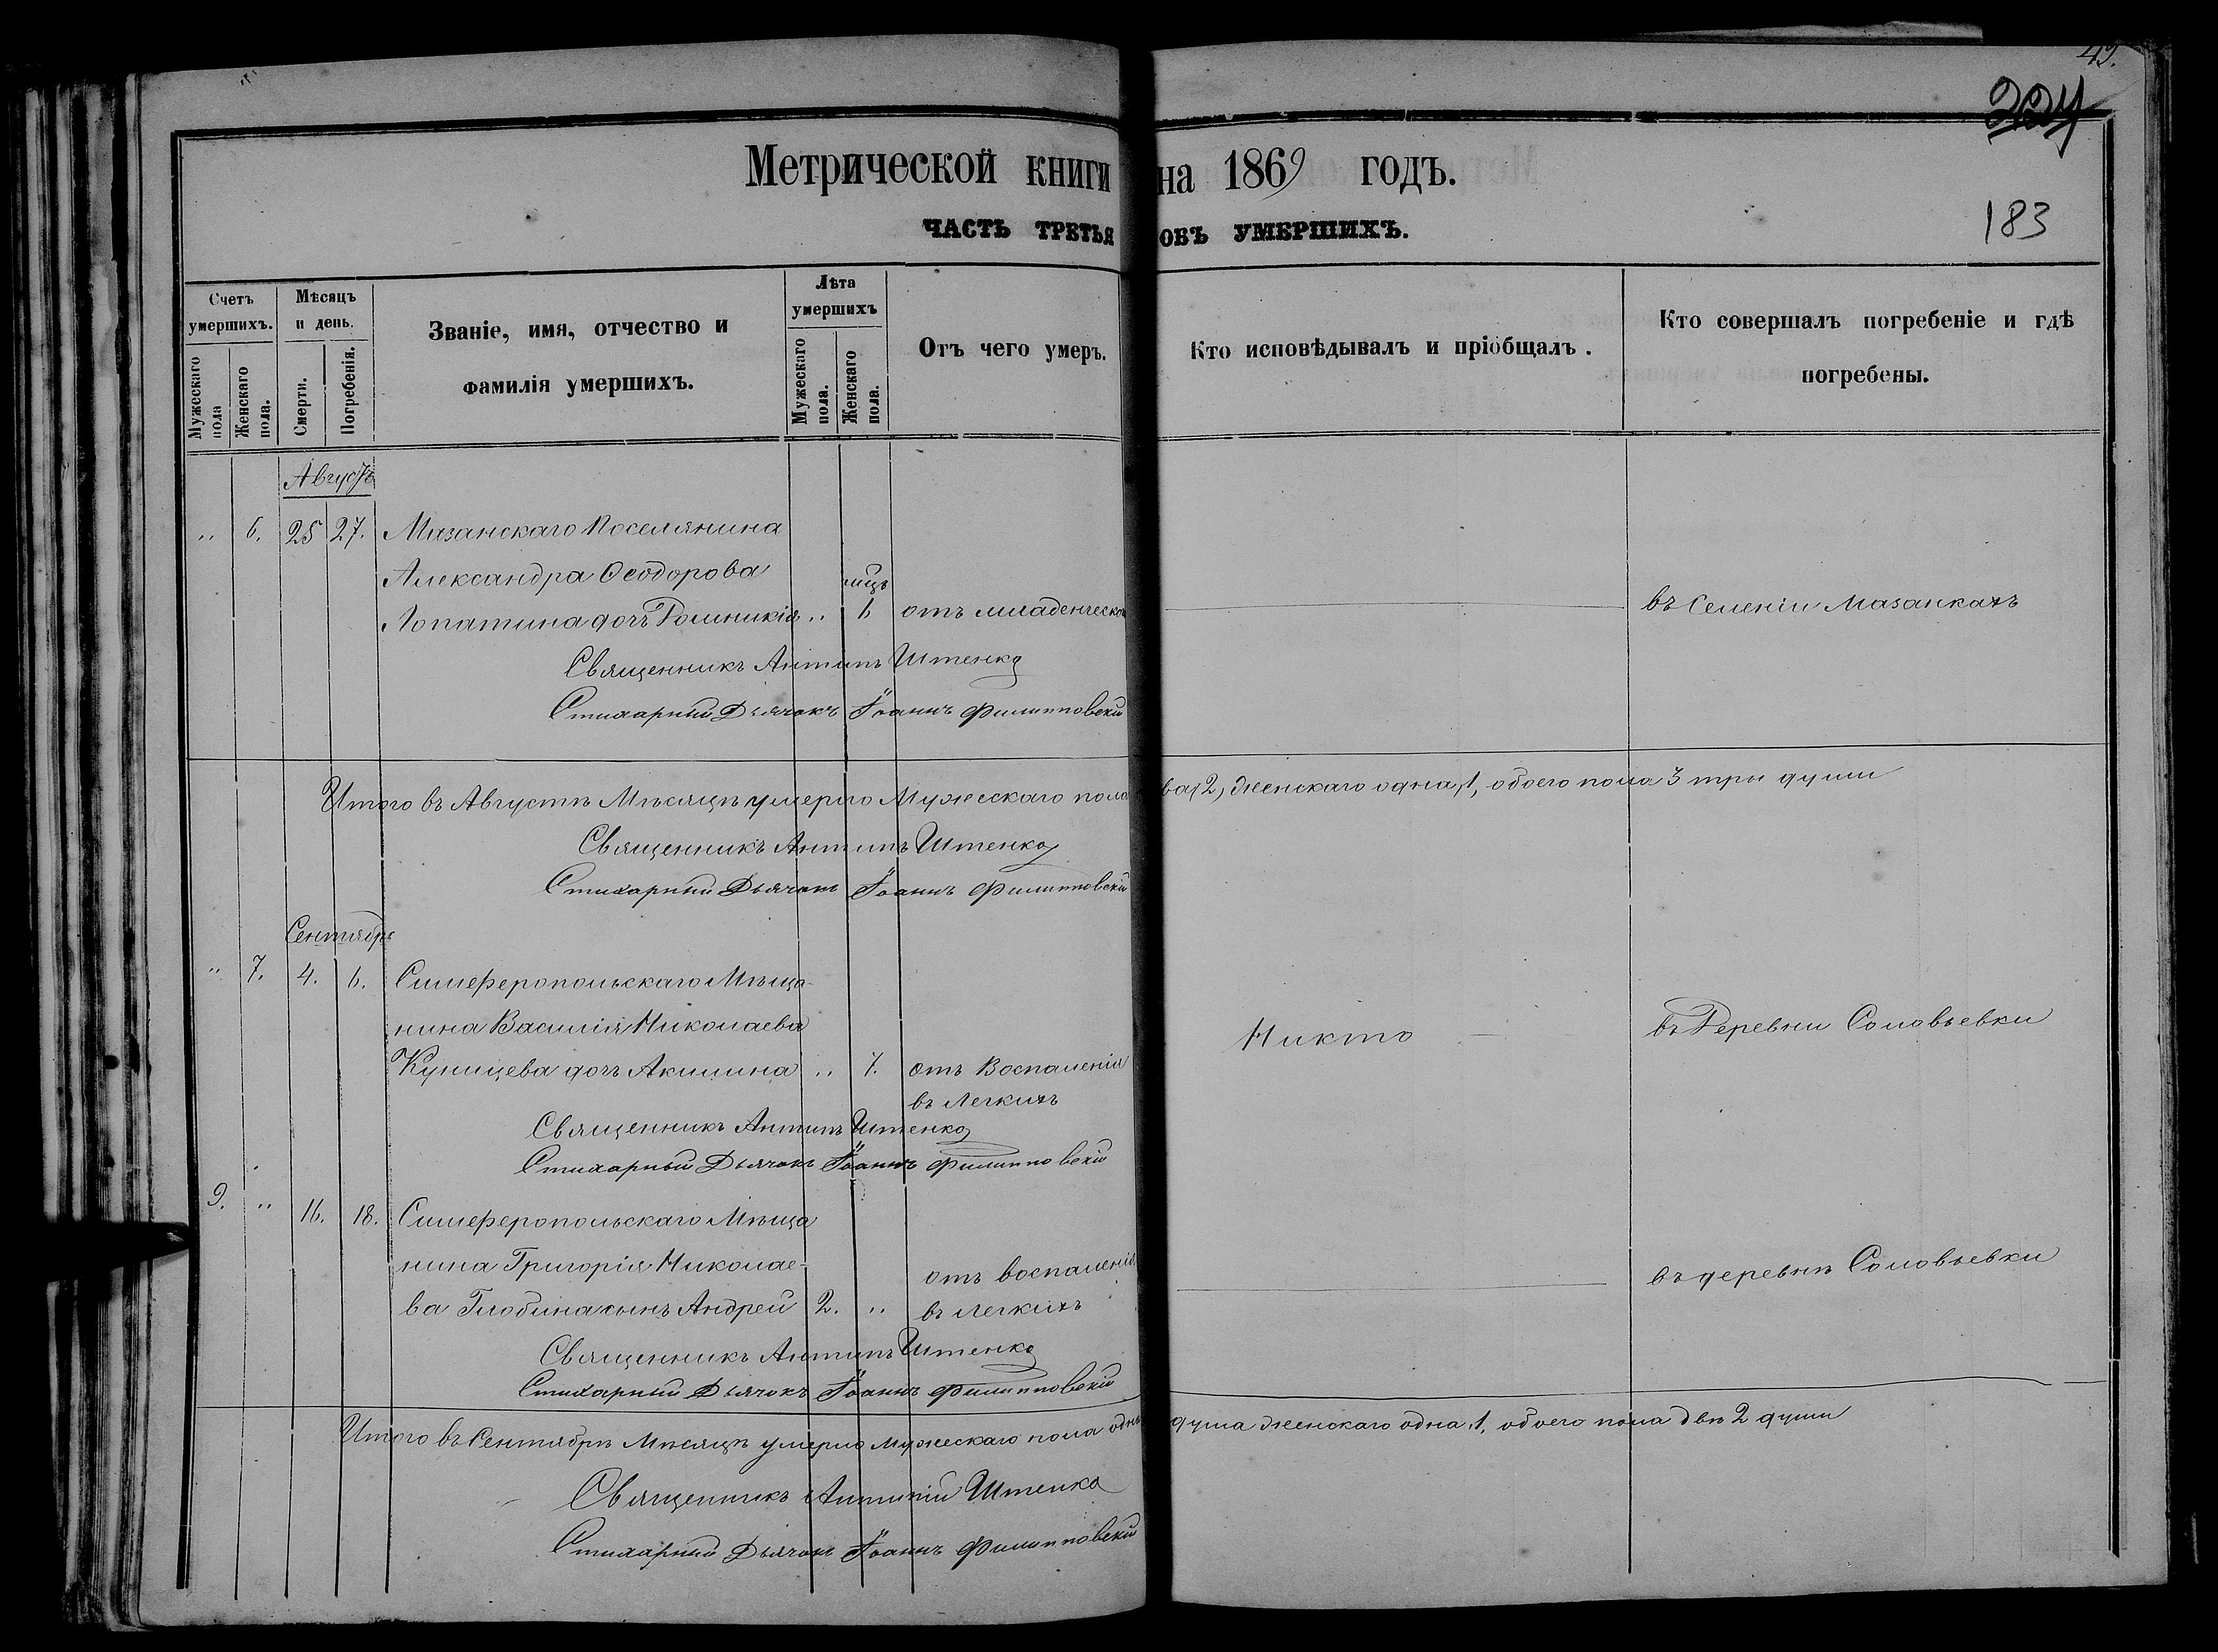 49.
224
183
Метрической книги на 1869 годъ.
ЧАСТЬ ТРЕТЬЯ ОВЪ УМЕРШИХЪ.
Счетъ умершихъ.
Мужескаго пола
Женскаго пола.
Мѣсяцъ и день.
Смерти.
Погребенія.
Званіе, имя, отчество и
фамилія умершихъ.
Лѣта умершихъ
Мужескаго пола.
Женскаго пола.
Отъ чего умеръ.
Кто исповѣдывалъ и пріобщалъ.
Кто совершалъ погребеніе и гдѣ
погребены.
Августъ
„ 6. 25 27. Мазанскаго Поселянина
Александра Ѳеодорова мцъ
Лопатина дочь „ 6 отъ младенческой въ Селеніи Мазанкахъ
Священникъ Антипъ Штенко
Стихарный Дьячокъ Іоаннъ Филипповскій
Итого въ Августѣ Мѣсяцѣ умерло Мужескаго пола ва, 2, Женскаго одна, 1, обоего пола 3 три души
Священникъ Антипъ Штенко
Стихарный Дьячокъ Іоаннъ Филипповскій
Сентябрь
„ 7. 4. 6. Симферопольскаго Мѣща-
нина Василія Николаева Никто въ Деревни Соловьевки
Куницева дочь Акилина „ 7. отъ Воспаленія
въ Легкихъ
Священникъ Антипъ Штенко
Стихарный Дьячокъ Іоаннъ Филипповскій
9. „ 16. 18. Симферопольскаго Мѣща
нина Григорія Николае- отъ воспаленія въ деревнѣ Соловьевки
ва Глобина сынъ Андрей 2. „ въ Легкихъ
Священникъ Антипъ Штенко
Стихарный Дьячокъ Іоаннъ Филипповскій
Итого въ Сентябрѣ Мѣсяцѣ умерло мужескаго пола одна душа Женскаго одна, 1, обоего пола двѣ 2 души
Священникъ Антипій Штенко
Стихарный Дьячокъ Іоаннъ Филипповскій